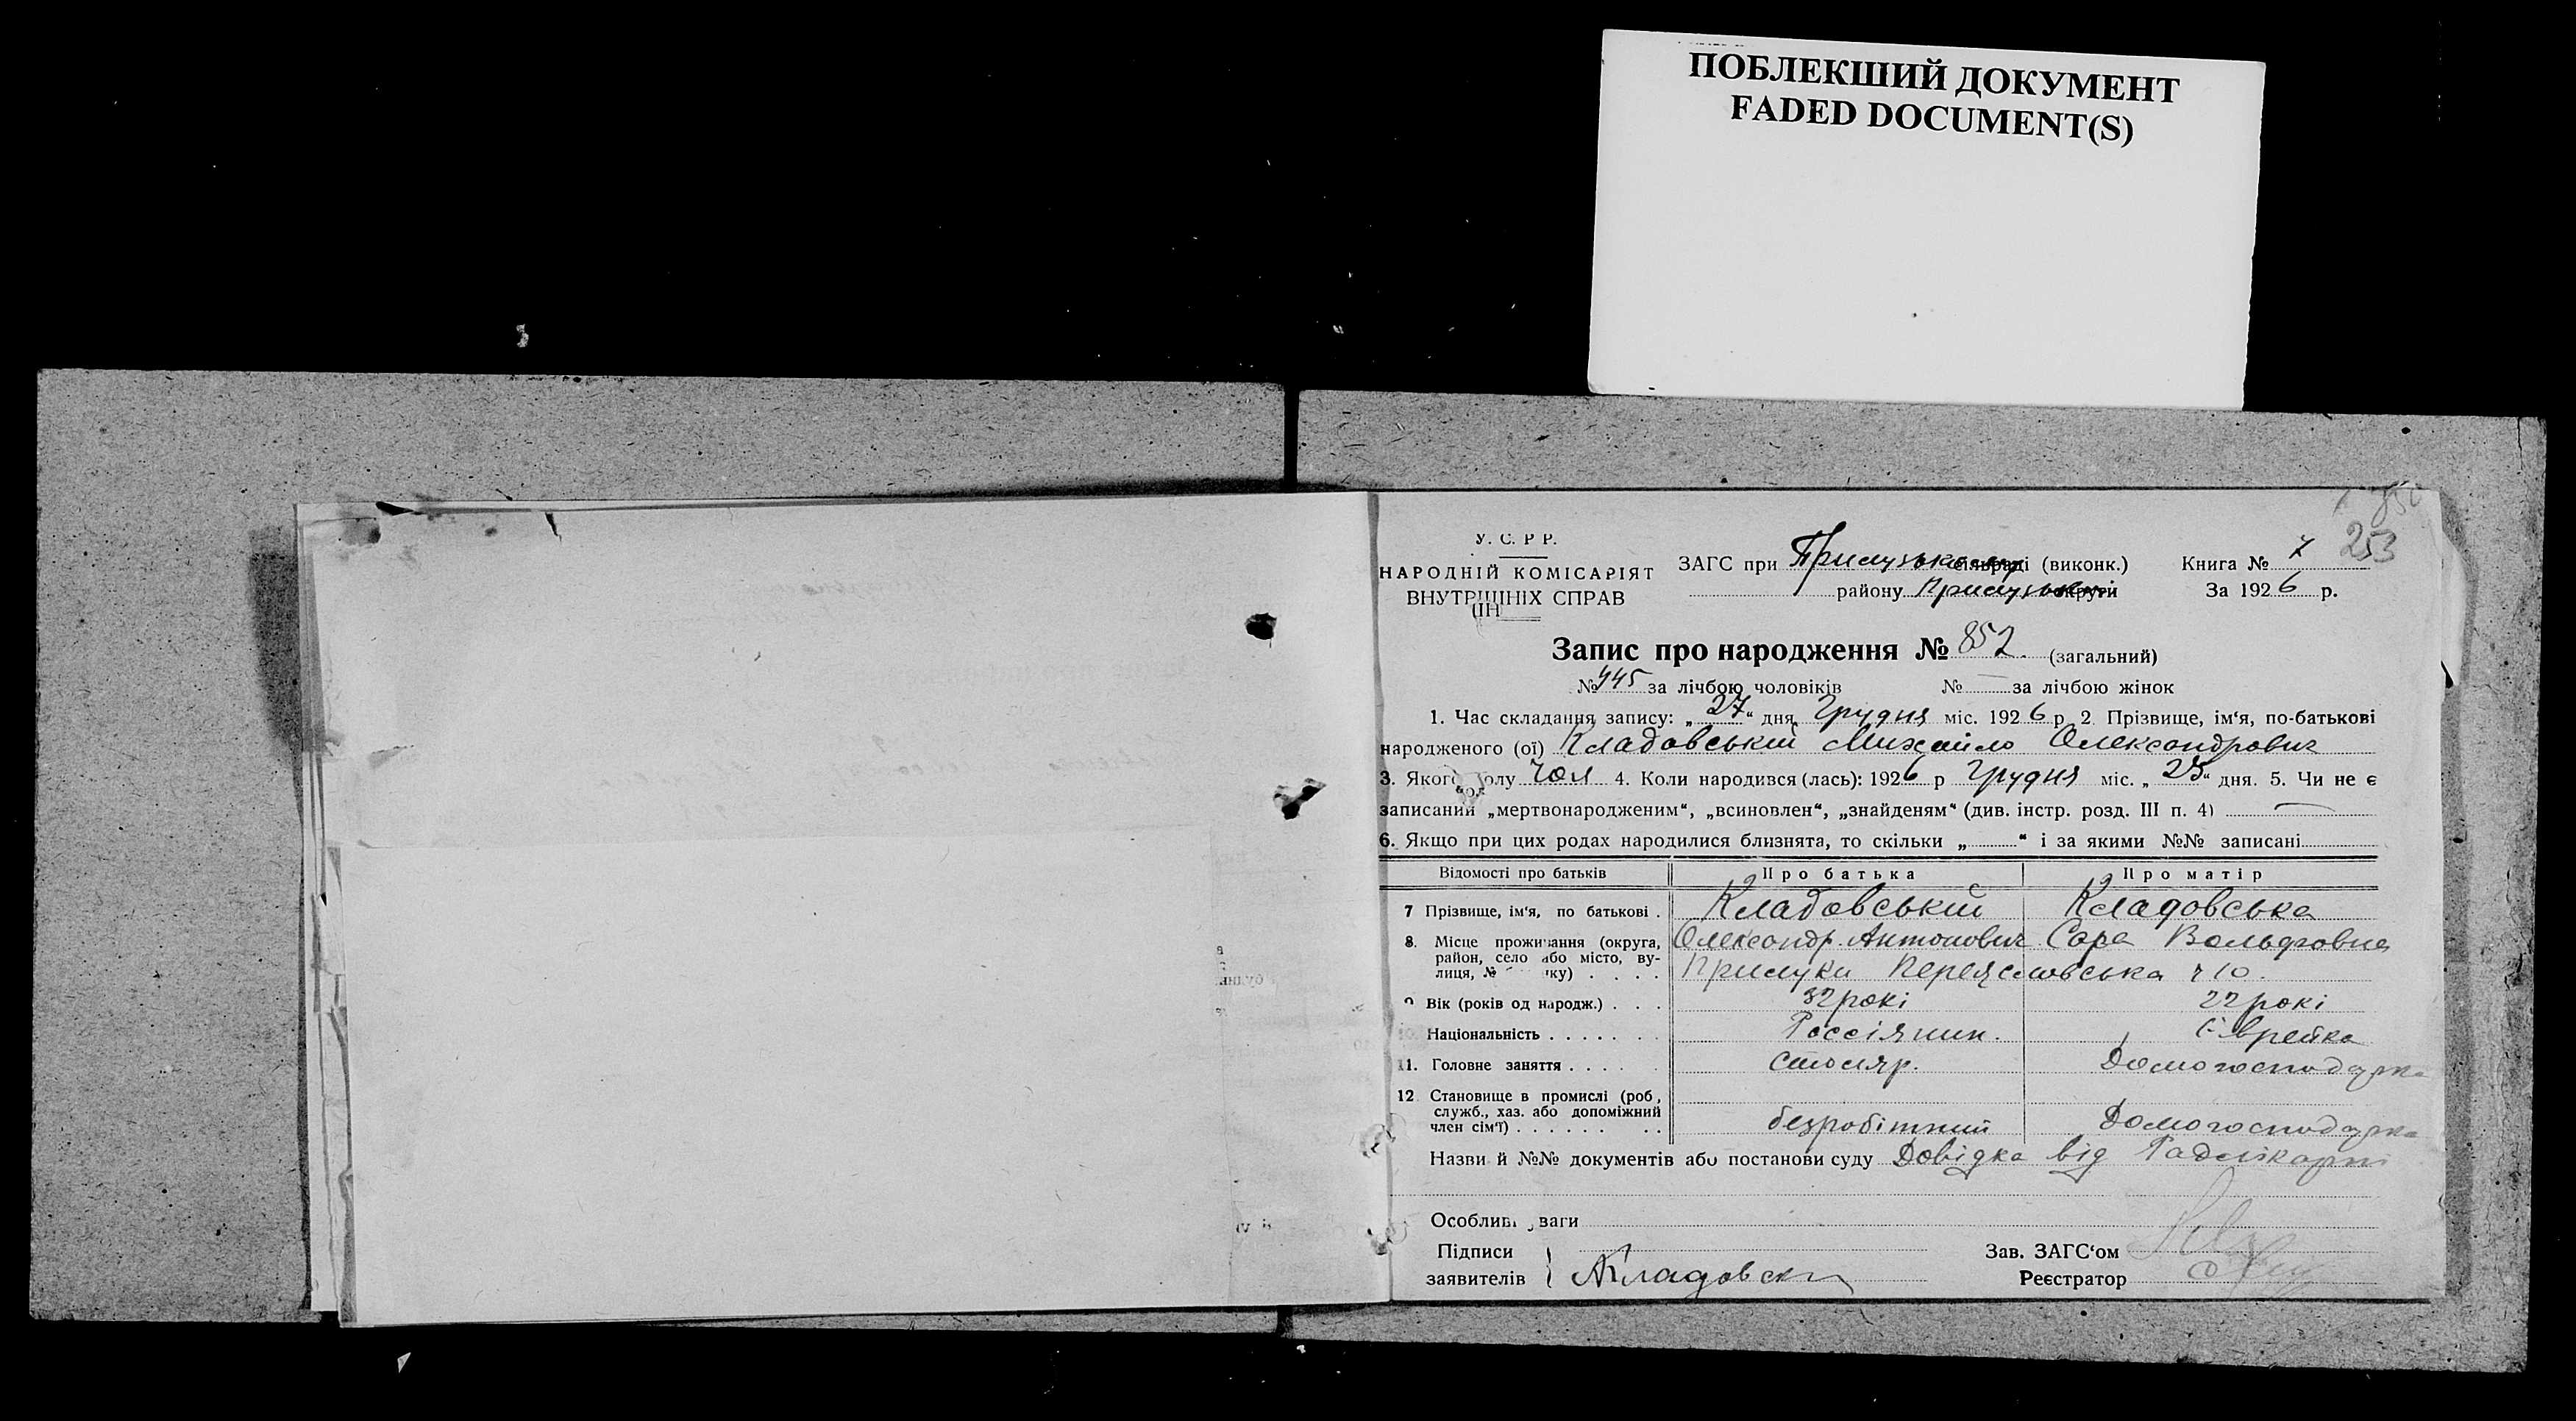 ПОБЛЕКШИЙ ДОКУМЕНТ
FADED DOCUMENT(S)
253
У. С. Р Р.
НАРОДНІЙ КОМІСАРІЯТ
ВНУТРІШНІХ СПРАВ
ЗАГС при Прилуцькому сільраді (виконк.) Книга № 7
району Прилуцької округи За 1926 р.
Запис про народження № 852. (загальний)
№ 445 за лічбою чоловіків № — за лічбою жінок
1. Час складання запису: „27“ дня Грудня міс. 1926 р 2. Прізвище, ім‘я, по-батькові
народженого (ої) Кладовський Михайло Олександрович
3. Якого полу Чол 4. Коли народився (лась): 1926 р Грудня міс. „25“ дня. 5. Чи не є
записаний „мертвонародженим“, „всиновлен“, „знайденям“ (див. інстр. розд. III п. 4) —
6. Якщо при цих родах народилися близнята, то скільки „ “ і за якими №№ записані
Відомості про батьків Про батька Про матір
7 Прізвище, ім‘я, по батькові . Кладовський Кладовська
Олександр Антонович Сара Вольфовна
8. Місце проживання (округа,
район, село або місто, ву-
лиця, № Прилуки Переяславська ч 10.
Вік (років од народж.) . . . 32 рокі 22 рокі
Національність . . . . . . Россіянин. Єврейка
11. Головне заняття . . . . Столяр. Домогосподарка
12 Становище в промислі (роб,
служб., хаз. або допоміжний
член сім‘ї) . . . . . . . . безробітний Домогосподарка
Назви й №№ документів або постанови суду Довідка від Радлікарні
Особливі уваги
Підписи
заявителів } АКладовски
Зав. ЗАГС‘ом
Реєстратор